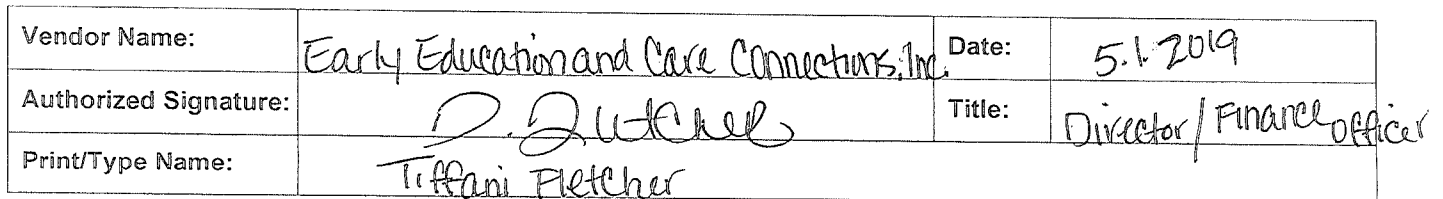 Vendor Name: Early Education and Care Connections, Inc. Date: 5.1.2019
Authorized Signature: Title: Director/Finance Officer
Print/Type Name: Tiffani Fletcher